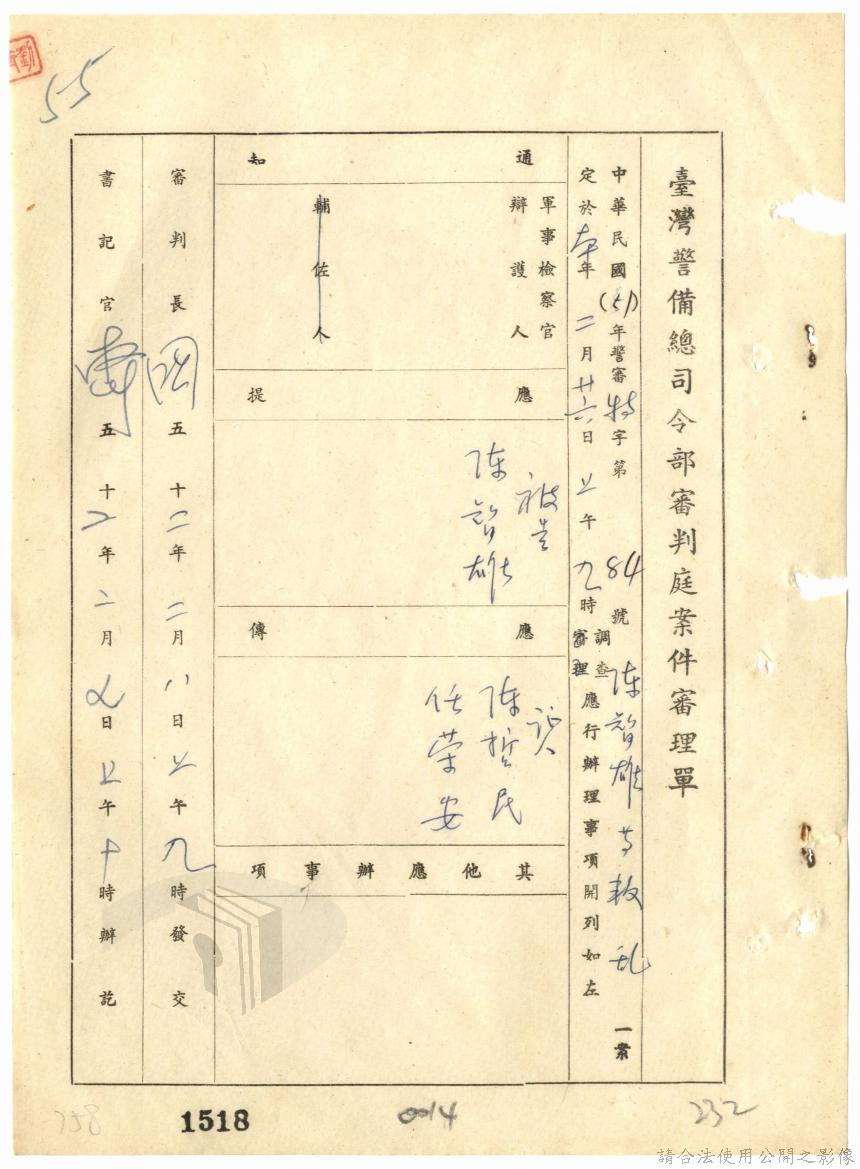 55
臺灣警備總司令部審判庭案件審理單
中華民國(51)年警審特字第84號陳智雄等叛乱一案
定於本年二月廿六日上午九時調查審理應行辦理事項開列如左
通知
軍事檢察官
辯護人
輔佐人
應提
被告
陳智雄
應傳
証人
陳哲民
任荣安
其他應辦事項
審判長 五十二年二月八日上午九時發交
書記官 五十二年二月 日上午十時辦訖
758
1518
0014
232
請合法使用公開之影像